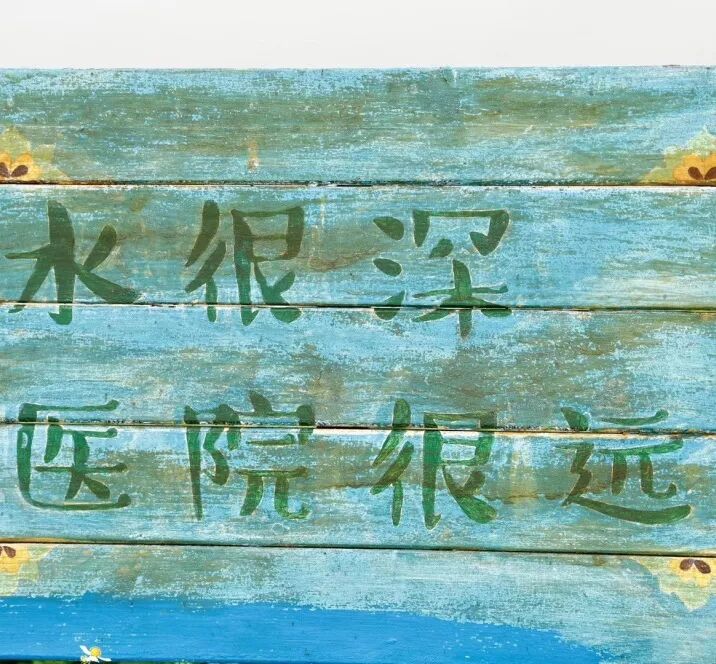 水很深
医院很远